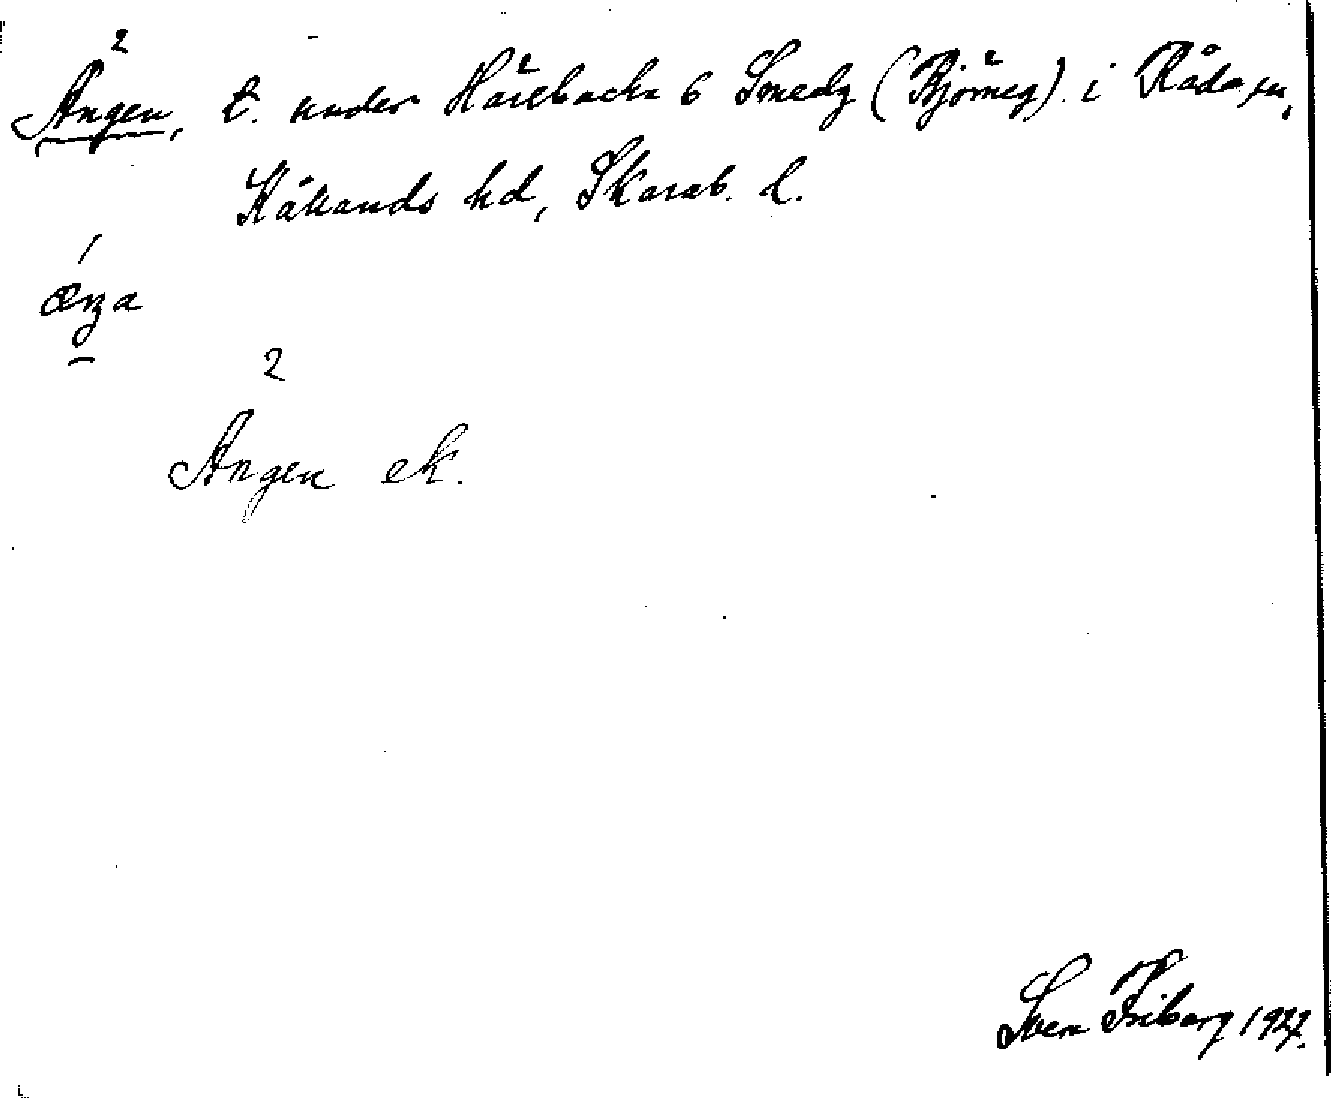 Ängen, t. under Härlbacka 6 Smedg (Björneg). i Råda sn,
Kållands hd, Skarab. l.
æŋa
Ängen ek.
Sven Friberg 1927.